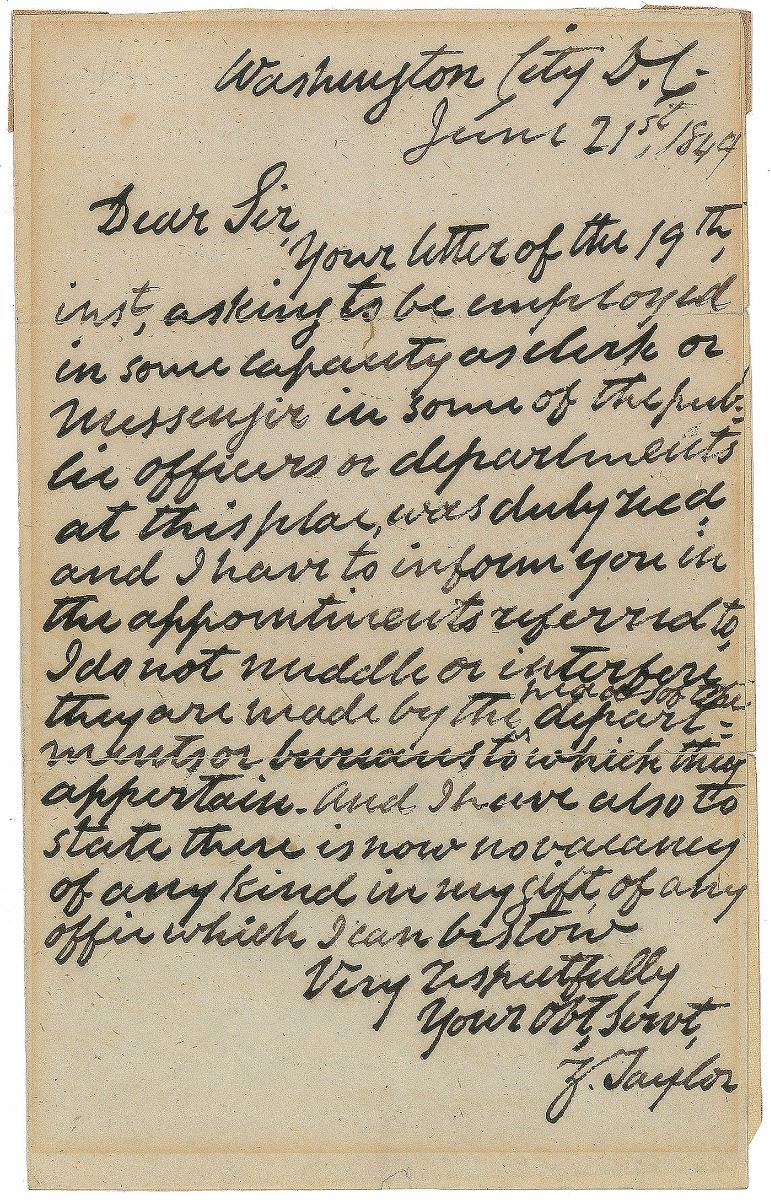 Washington City D.C.
June 21st, 1849
Dear Sir,
Your letter of the 19th,
inst, asking to be employed
in some capacity as clerk or
messenger in some of the pub-
lic officers or departments
at this place, was duly recd,
and I have to inform you in
the appointments referred to,
I do not meddle or interfere,
heads of the
they are made by the ^ depart-
ments or bureaus to which they
appertain. And I have also to
state there is now no vacancy
of any kind in my gift, of any
office which I can bestow
Very respectfully
Your Obt, Servt,
Z. Taylor